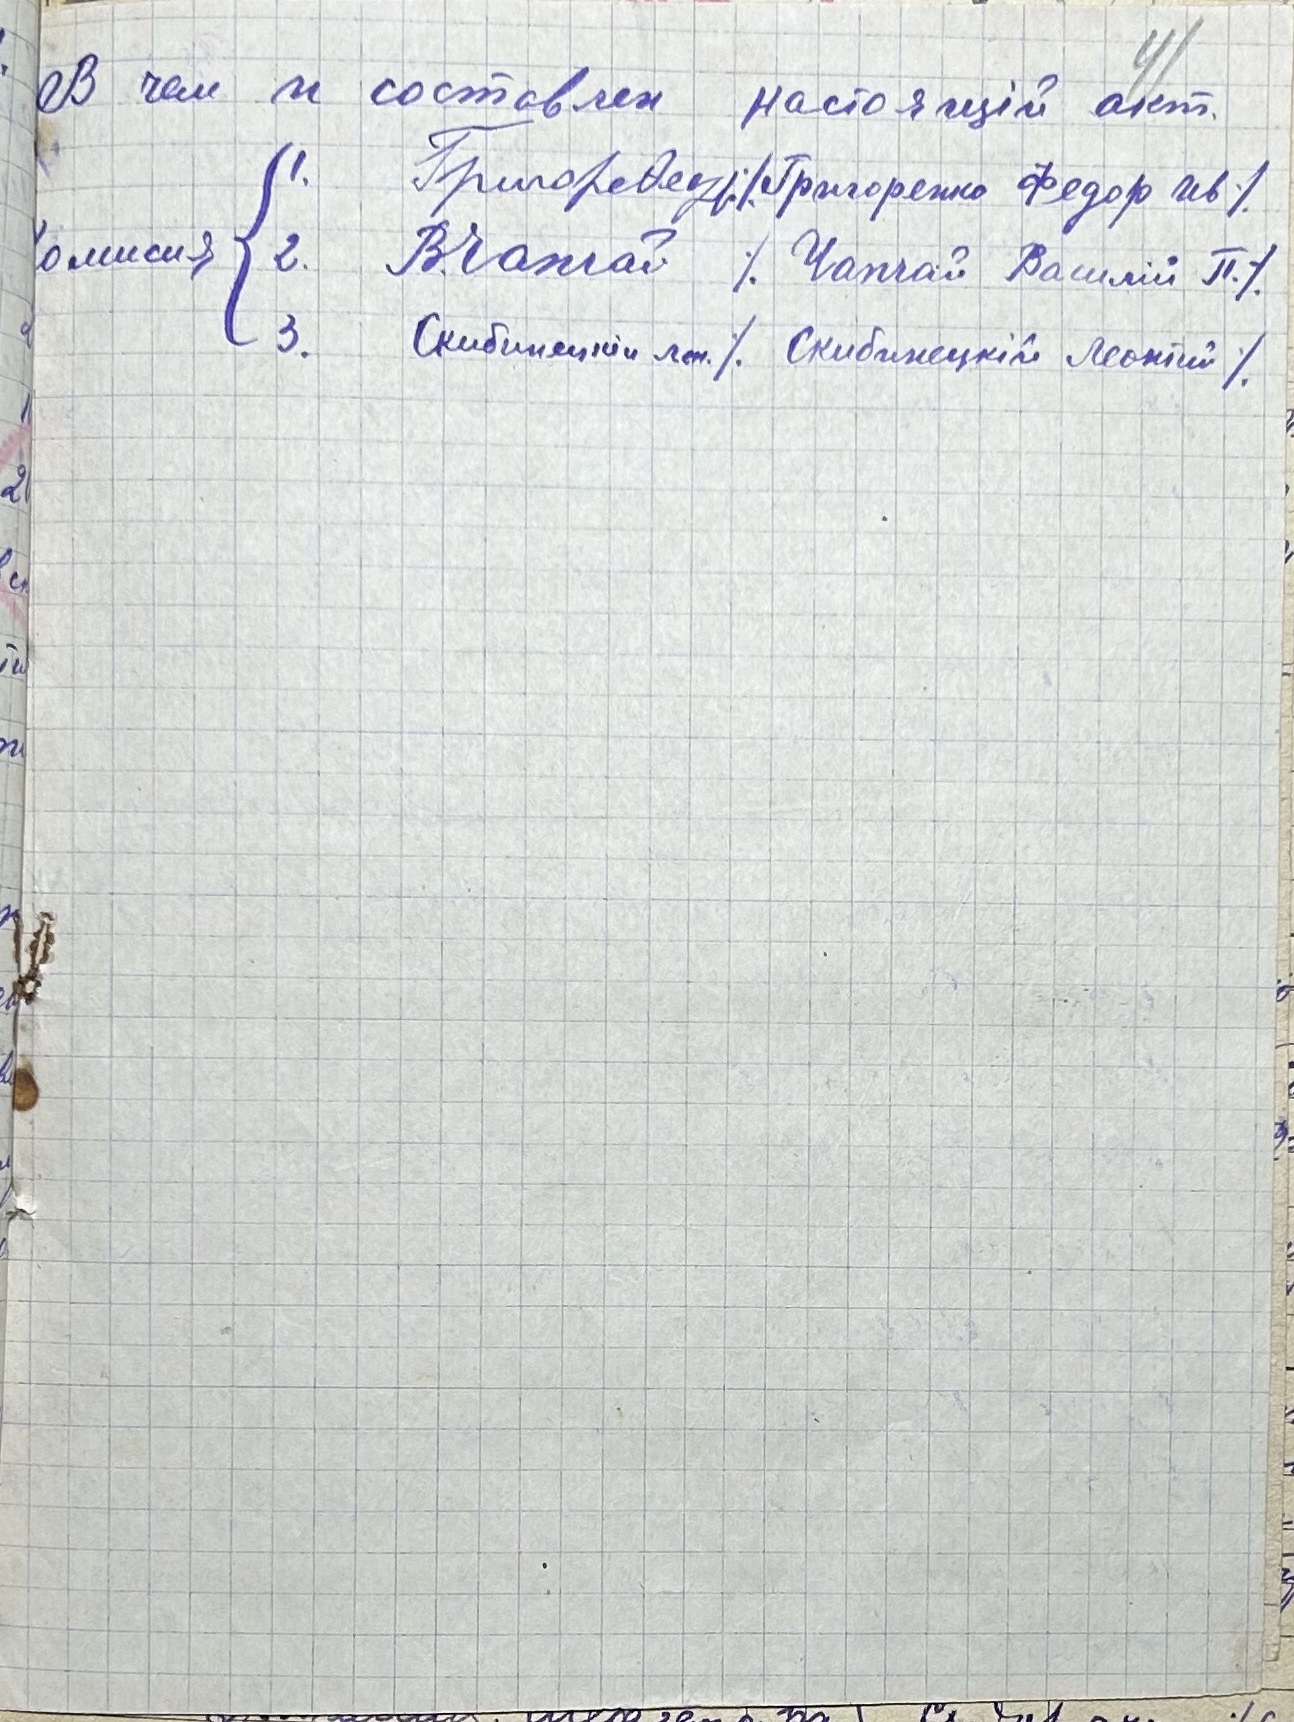 41
В чем и составлен настоящій акт.
Комисия { 1. ./. Григоренко Федор Ив ./.
2. В.Чапчай ./. Чапчай Василій П. ./.
3. Скибинецкій Леон. ./. Скибинецкій Леонтий ./.